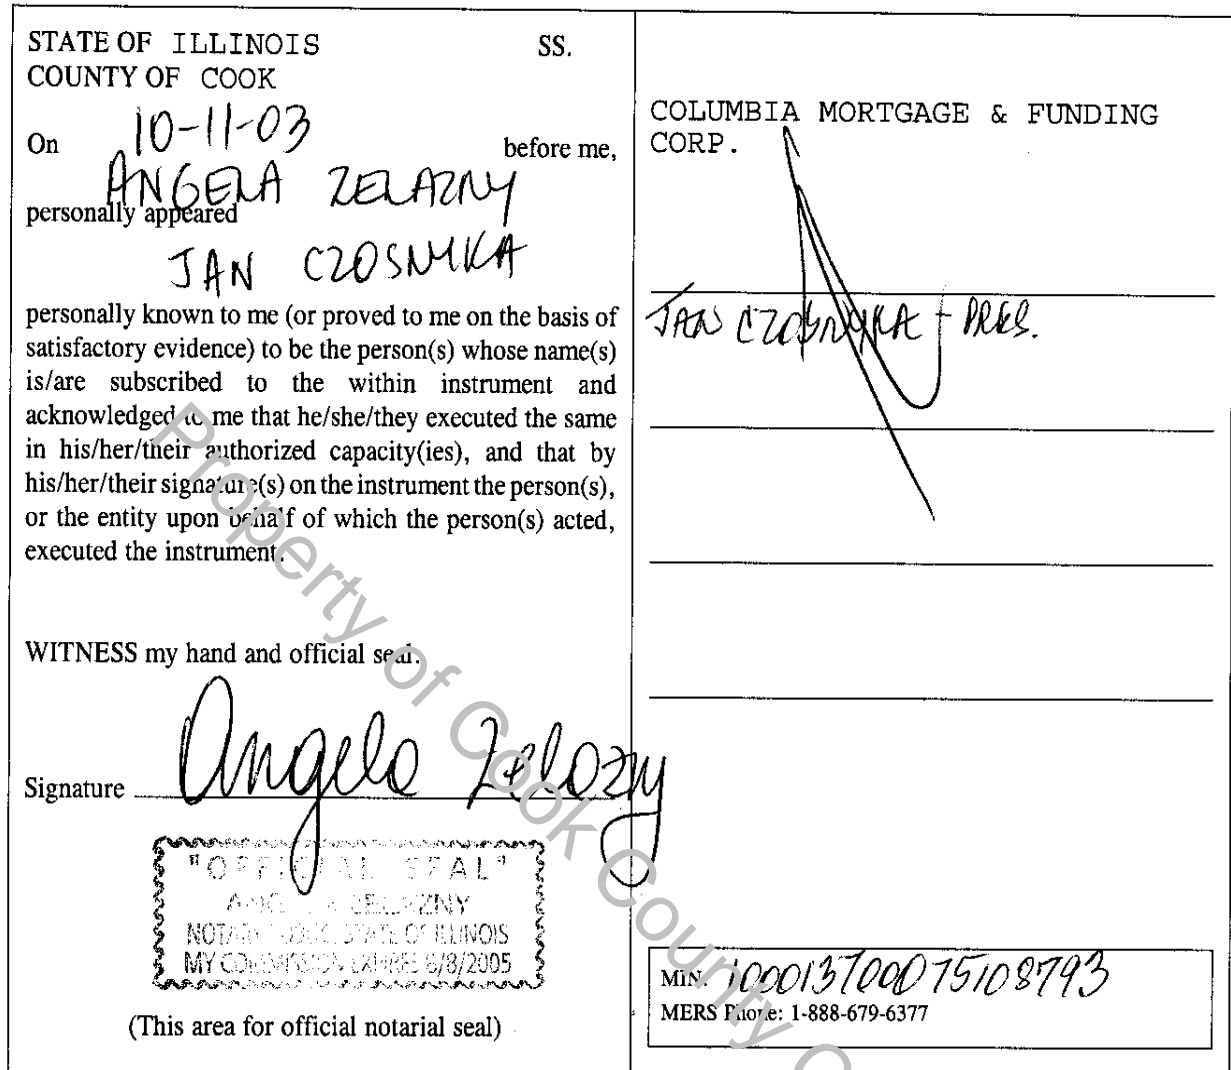 STATE OF ILLINOIS SS.
COUNTY OF COOK
On 10-11-03 before me,
ANGELA ZELAZNY
personally appeared
JAN CZOSNYKA
personally known to me (or proved to me on the basis of
satisfactory evidence) to be the person(s) whose name(s)
is/are subscribed to the within instrument and
acknowledged to me that he/she/they executed the same
in his/her/their authorized capacity(ies), and that by
his/her/their signature(s) on the instrument the person(s),
or the entity upon behalf of which the person(s) acted,
executed the instrument.
WITNESS my hand and official seal.
Signature Angela Zelazny
"OFFICIAL SEAL"
ANGELA ZELAZNY
NOTARY PUBLIC, STATE OF ILLINOIS
MY COMMISSION EXPIRES 8/8/2005
(This area for official notarial seal)
COLUMBIA MORTGAGE & FUNDING
CORP.
JAN CZOSNYKA - PRES.
MIN. 100013700075108793
MERS Phone: 1-888-679-6377
Property of Cook County